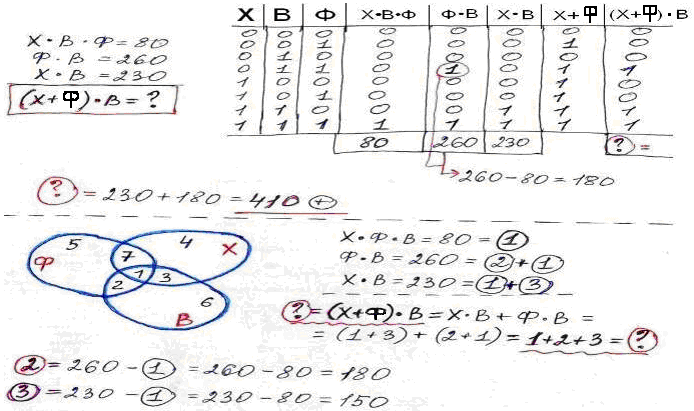 Х В Ф Х·В·Ф Ф·В Х·В Х+Ф (Х+Ф)·В
0 0 0 0 0 0 0 0
0 0 1 0 0 0 1 0
0 1 0 0 0 0 0 0
0 1 1 0 1 0 1 1
1 0 0 0 0 0 1 0
1 0 1 0 0 0 1 0
1 1 0 0 0 1 1 1
1 1 1 1 1 1 1 1
80 260 230 ? =
260-80=180
Х·В·Ф=80
Ф·В=260
Х·В=230
(Х+Ф)·В=?
?=230+180=410 ⊕
5 4
Ф 7 Х
1
2 3
6
В
Х·Ф·В=80=1
Ф·В=260=2+1
Х·В=230=1+3
?=(Х+Ф)·В=Х·В+Ф·В=
=(1+3)+(2+1)=1+2+3=?
2=260-1=260-80=180
3=230-1=230-80=150